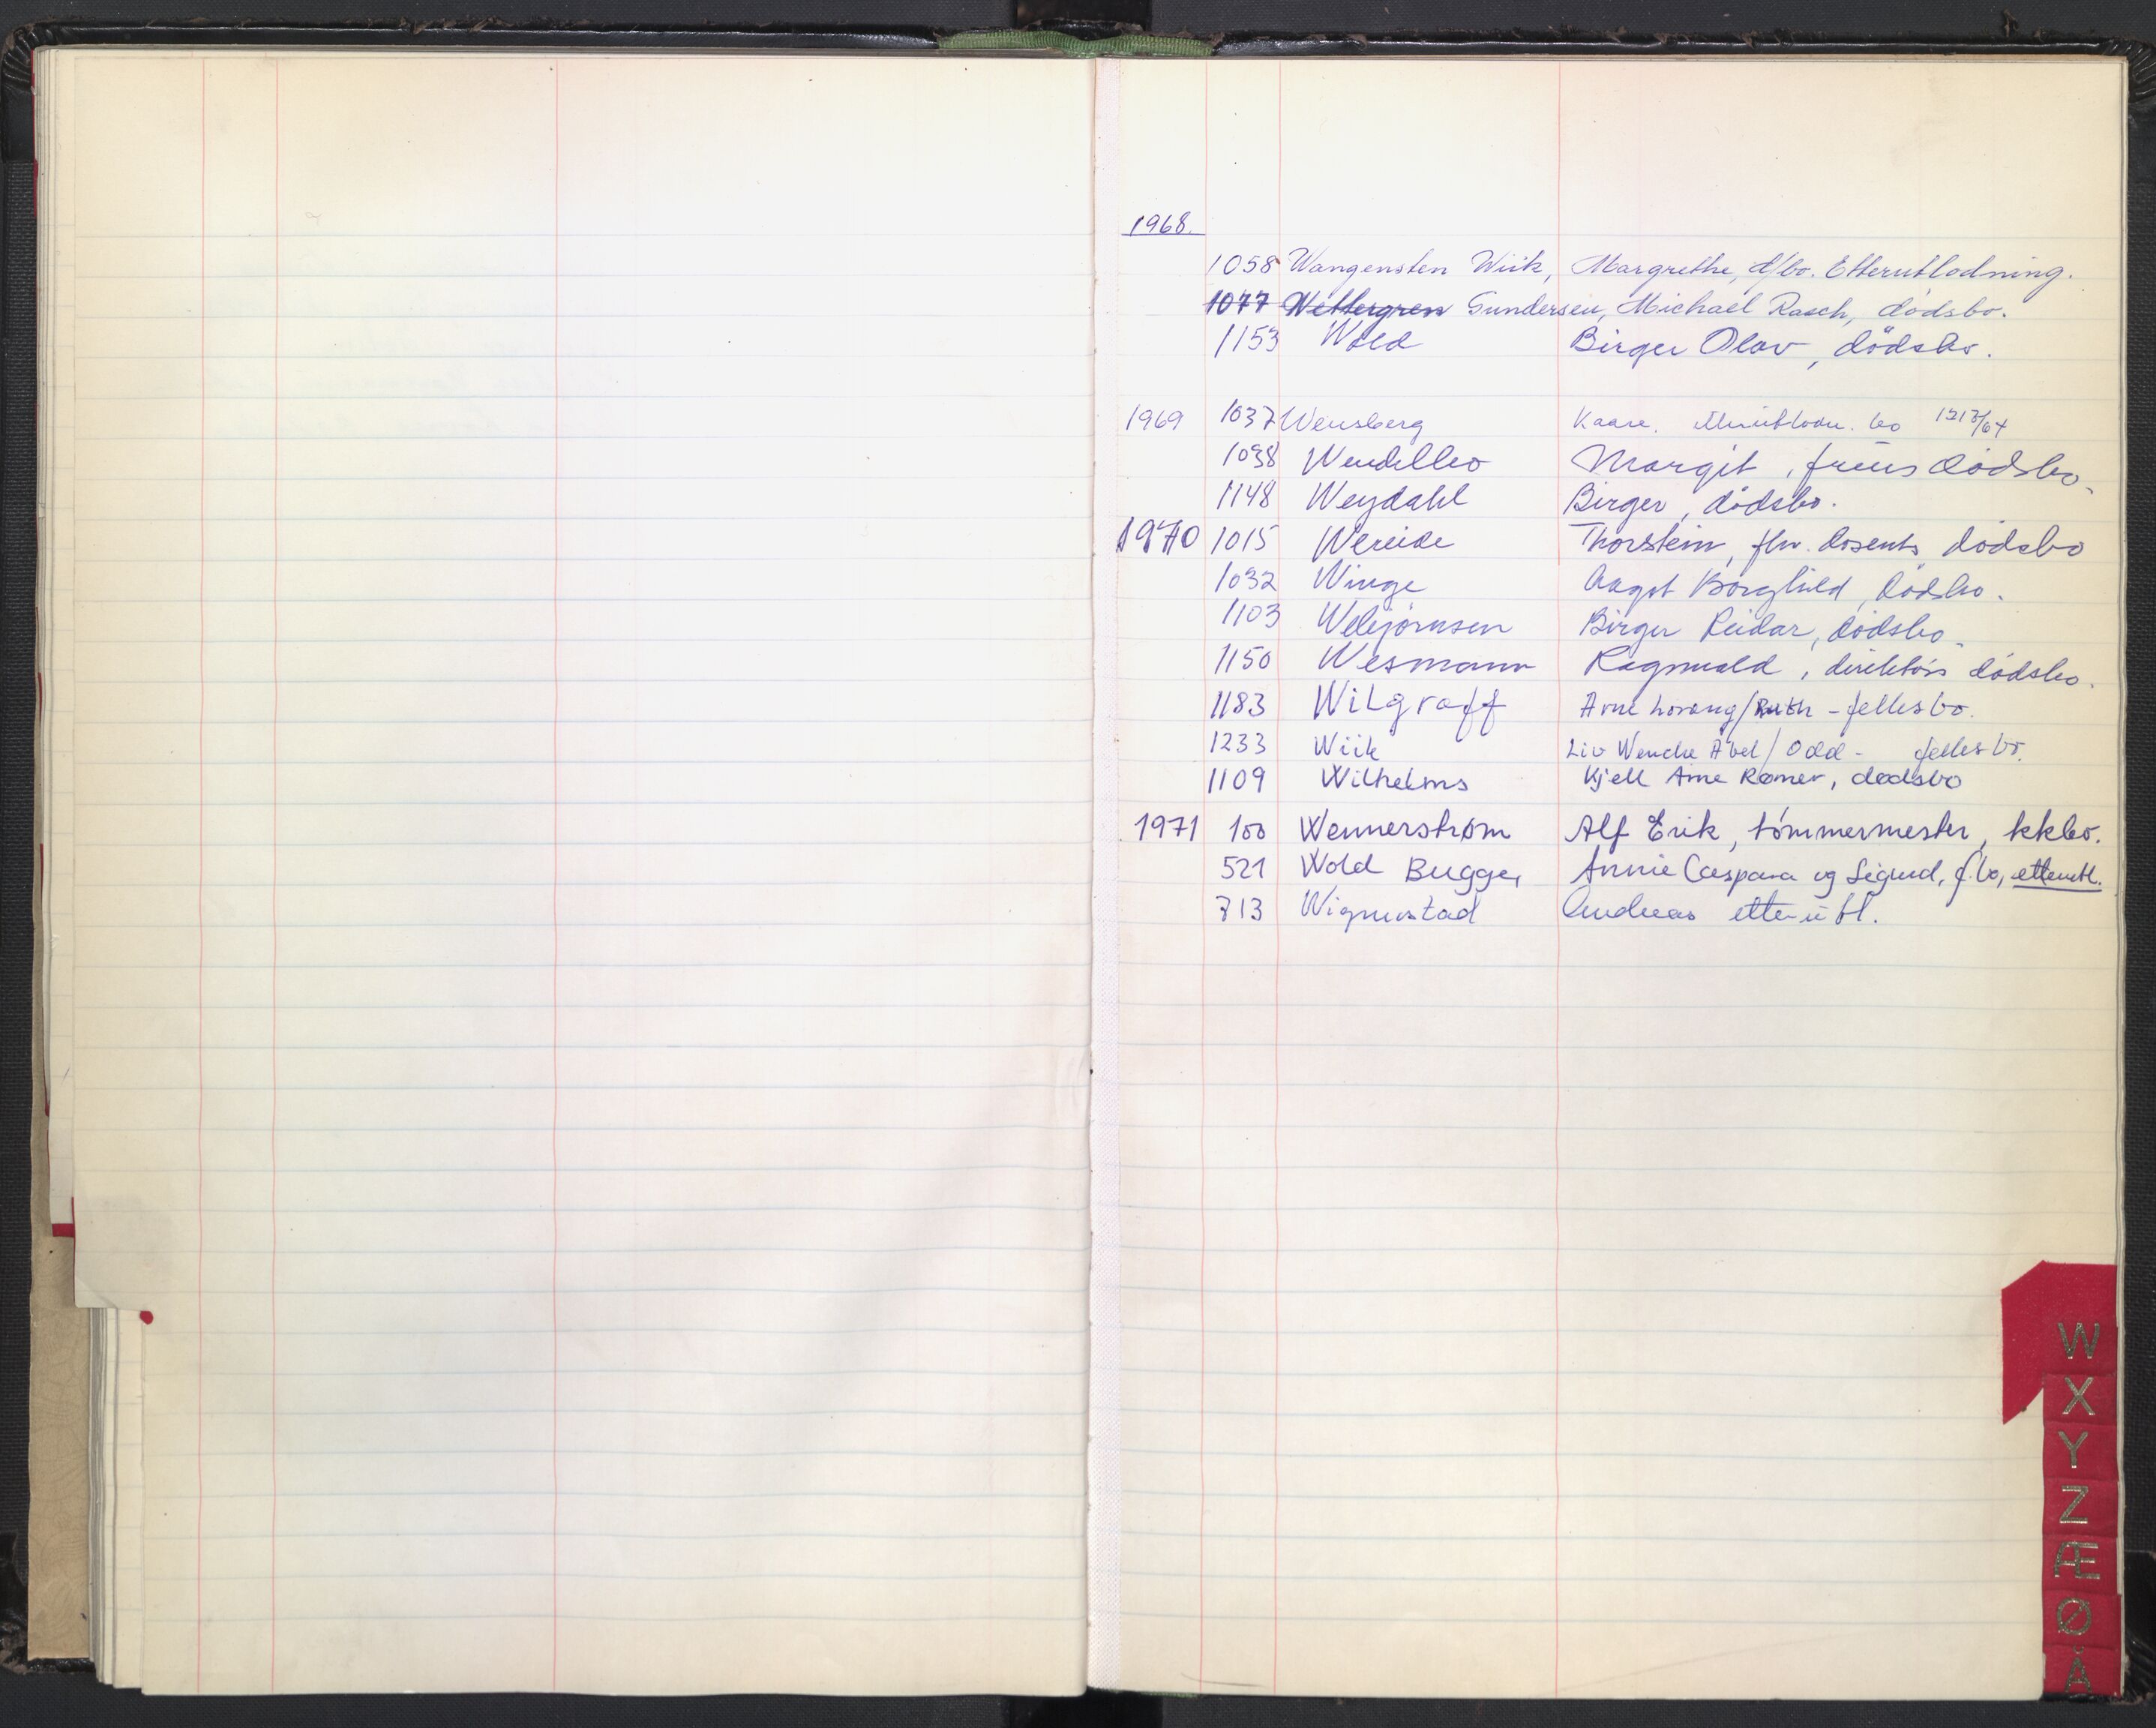 1968.
1058 Wangensten Wiik, Margrethe, d/bo. Etterutlodning.
1077 Wettergren Gundersen, Michael Rasch, dödsbo.
1153 Wold Birger Olav, dödsbo.
1969 1037 Wensberg Kaare. bo 1213/64
1038 Wendelbo Margit, frues dödsbo.
1148 Weydahl Birger, dödsbo.
1970 1015 Wereide Thorstein, fhv. dosents dödsbo
1032 Winge Aagot Borghild, dödsbo.
1103 Webjörnsen Birger Reidar, dödsbo.
1150 Wesmann Ragnvald, direktörs dödsbo.
1183 Wilgraff Arne Lorang/Ruth - fellesbo.
1233 Wiik Liv Wenche Abel/Odd - fellesbo.
1109 Wilhelms Kjell Arne Rømer, dødsbo
1971 100 Wennerstrøm Alf Erik, tømmermester, kkbo.
521 Wold Bugge, Annie Caspara og Sigurd, f.bo, etterutl.
713 Wigmostad Andreas etterutl.
W
X
Y
Z
Æ
Ø
Å